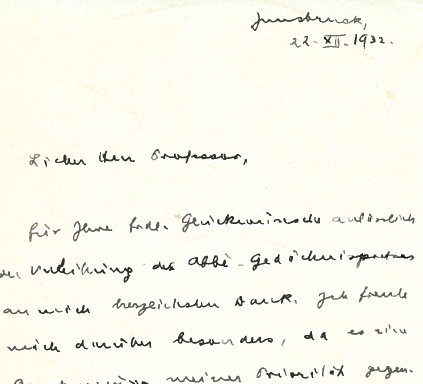 Innsbruck,
22. XII. 1932.
Lieber Herr Professor,
für Ihre frdl. Glückwünsche anlässlich
der Verleihung des Abbè-Gedächnispreises
an mich herzlichsten Dank. Ich freute
mich darüber besonders, da es eine
meiner Priorität gegen-